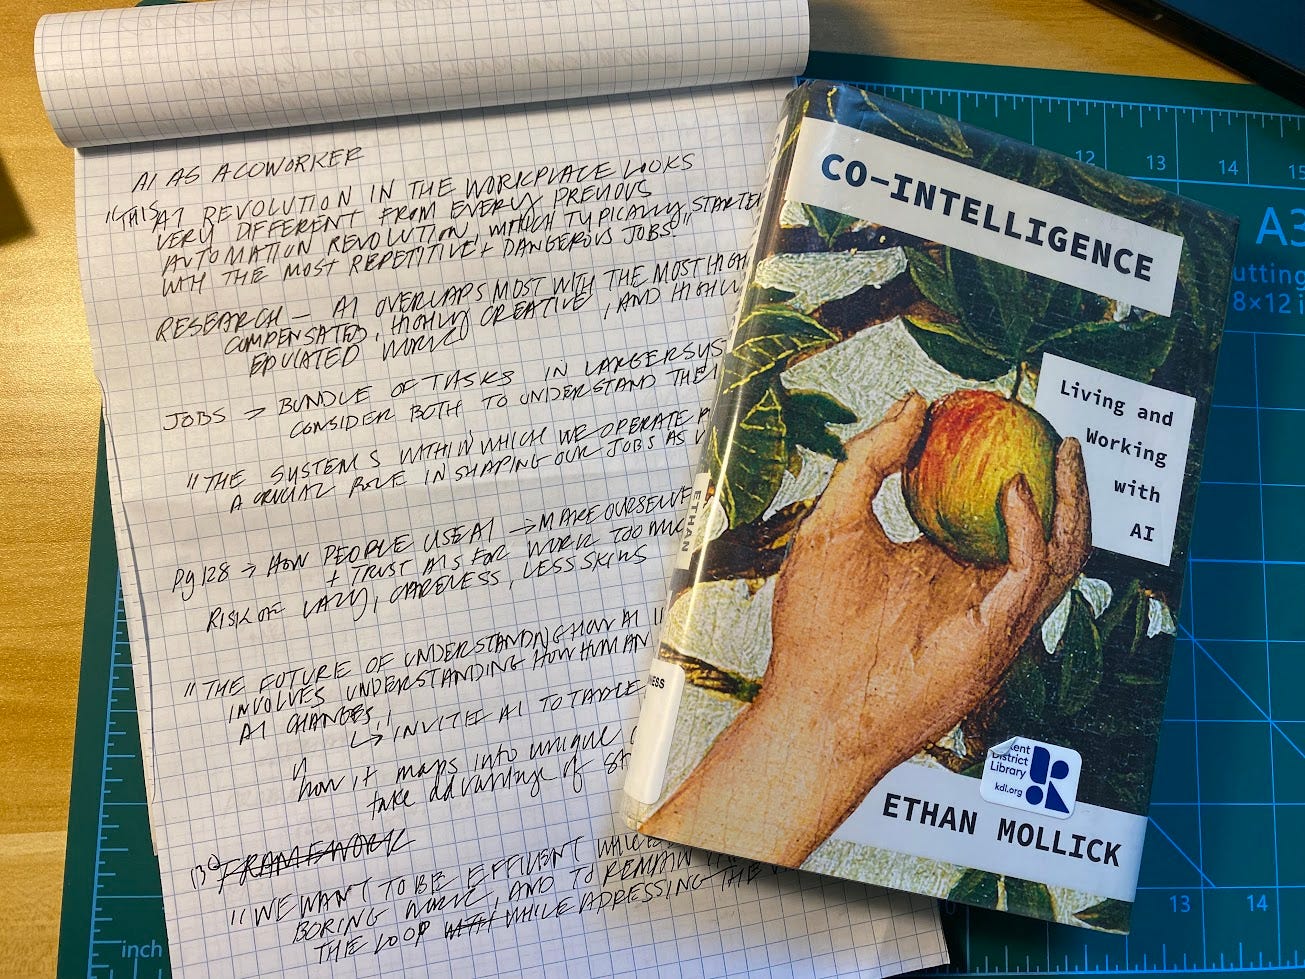 AI AS A COWORKER
"THIS AI REVOLUTION IN THE WORKPLACE LOOKS
VERY DIFFERENT FROM EVERY PREVIOUS
AUTOMATION REVOLUTION, WHICH TYPICALLY STARTED
WITH THE MOST REPETITIVE + DANGEROUS JOBS"
RESEARCH — AI OVERLAPS MOST WITH THE MOST HIGH
COMPENSATED, HIGHLY CREATIVE, AND HIGHLY
EDUCATED WORK
JOBS → BUNDLE OF TASKS IN LARGER SYS
CONSIDER BOTH TO UNDERSTAND THE
"THE SYSTEMS WITHIN WHICH WE OPERATE P
A CRUCIAL ROLE IN SHAPING OUR JOBS AS W
pg 128 → HOW PEOPLE USE AI → MAKE OURSELVE
+ TRUST AIS FOR WORK TOO MUC
RISK OF LAZY, CARELESS, LESS SKILLS
"THE FUTURE OF UNDERSTANDING HOW AI I
INVOLVES UNDERSTANDING HOW HUMAN
AI CHANGES,"
↳ INVITE AI TO TABLE
how it maps into unique
take advantage of
130 FRAMEWORK
"WE WANT TO BE EFFICIENT WHILE
BORING WORK, AND TO REMAIN
THE LOOP WITH WHILE ADRESSING THE V
CO-INTELLIGENCE
Living and
Working
with
AI
ETHAN MOLLICK
Kent
District
Library
kdl.org
ETHAN
NESS
12 13 14 15
A3
utting
8×12 i
inch
13 14